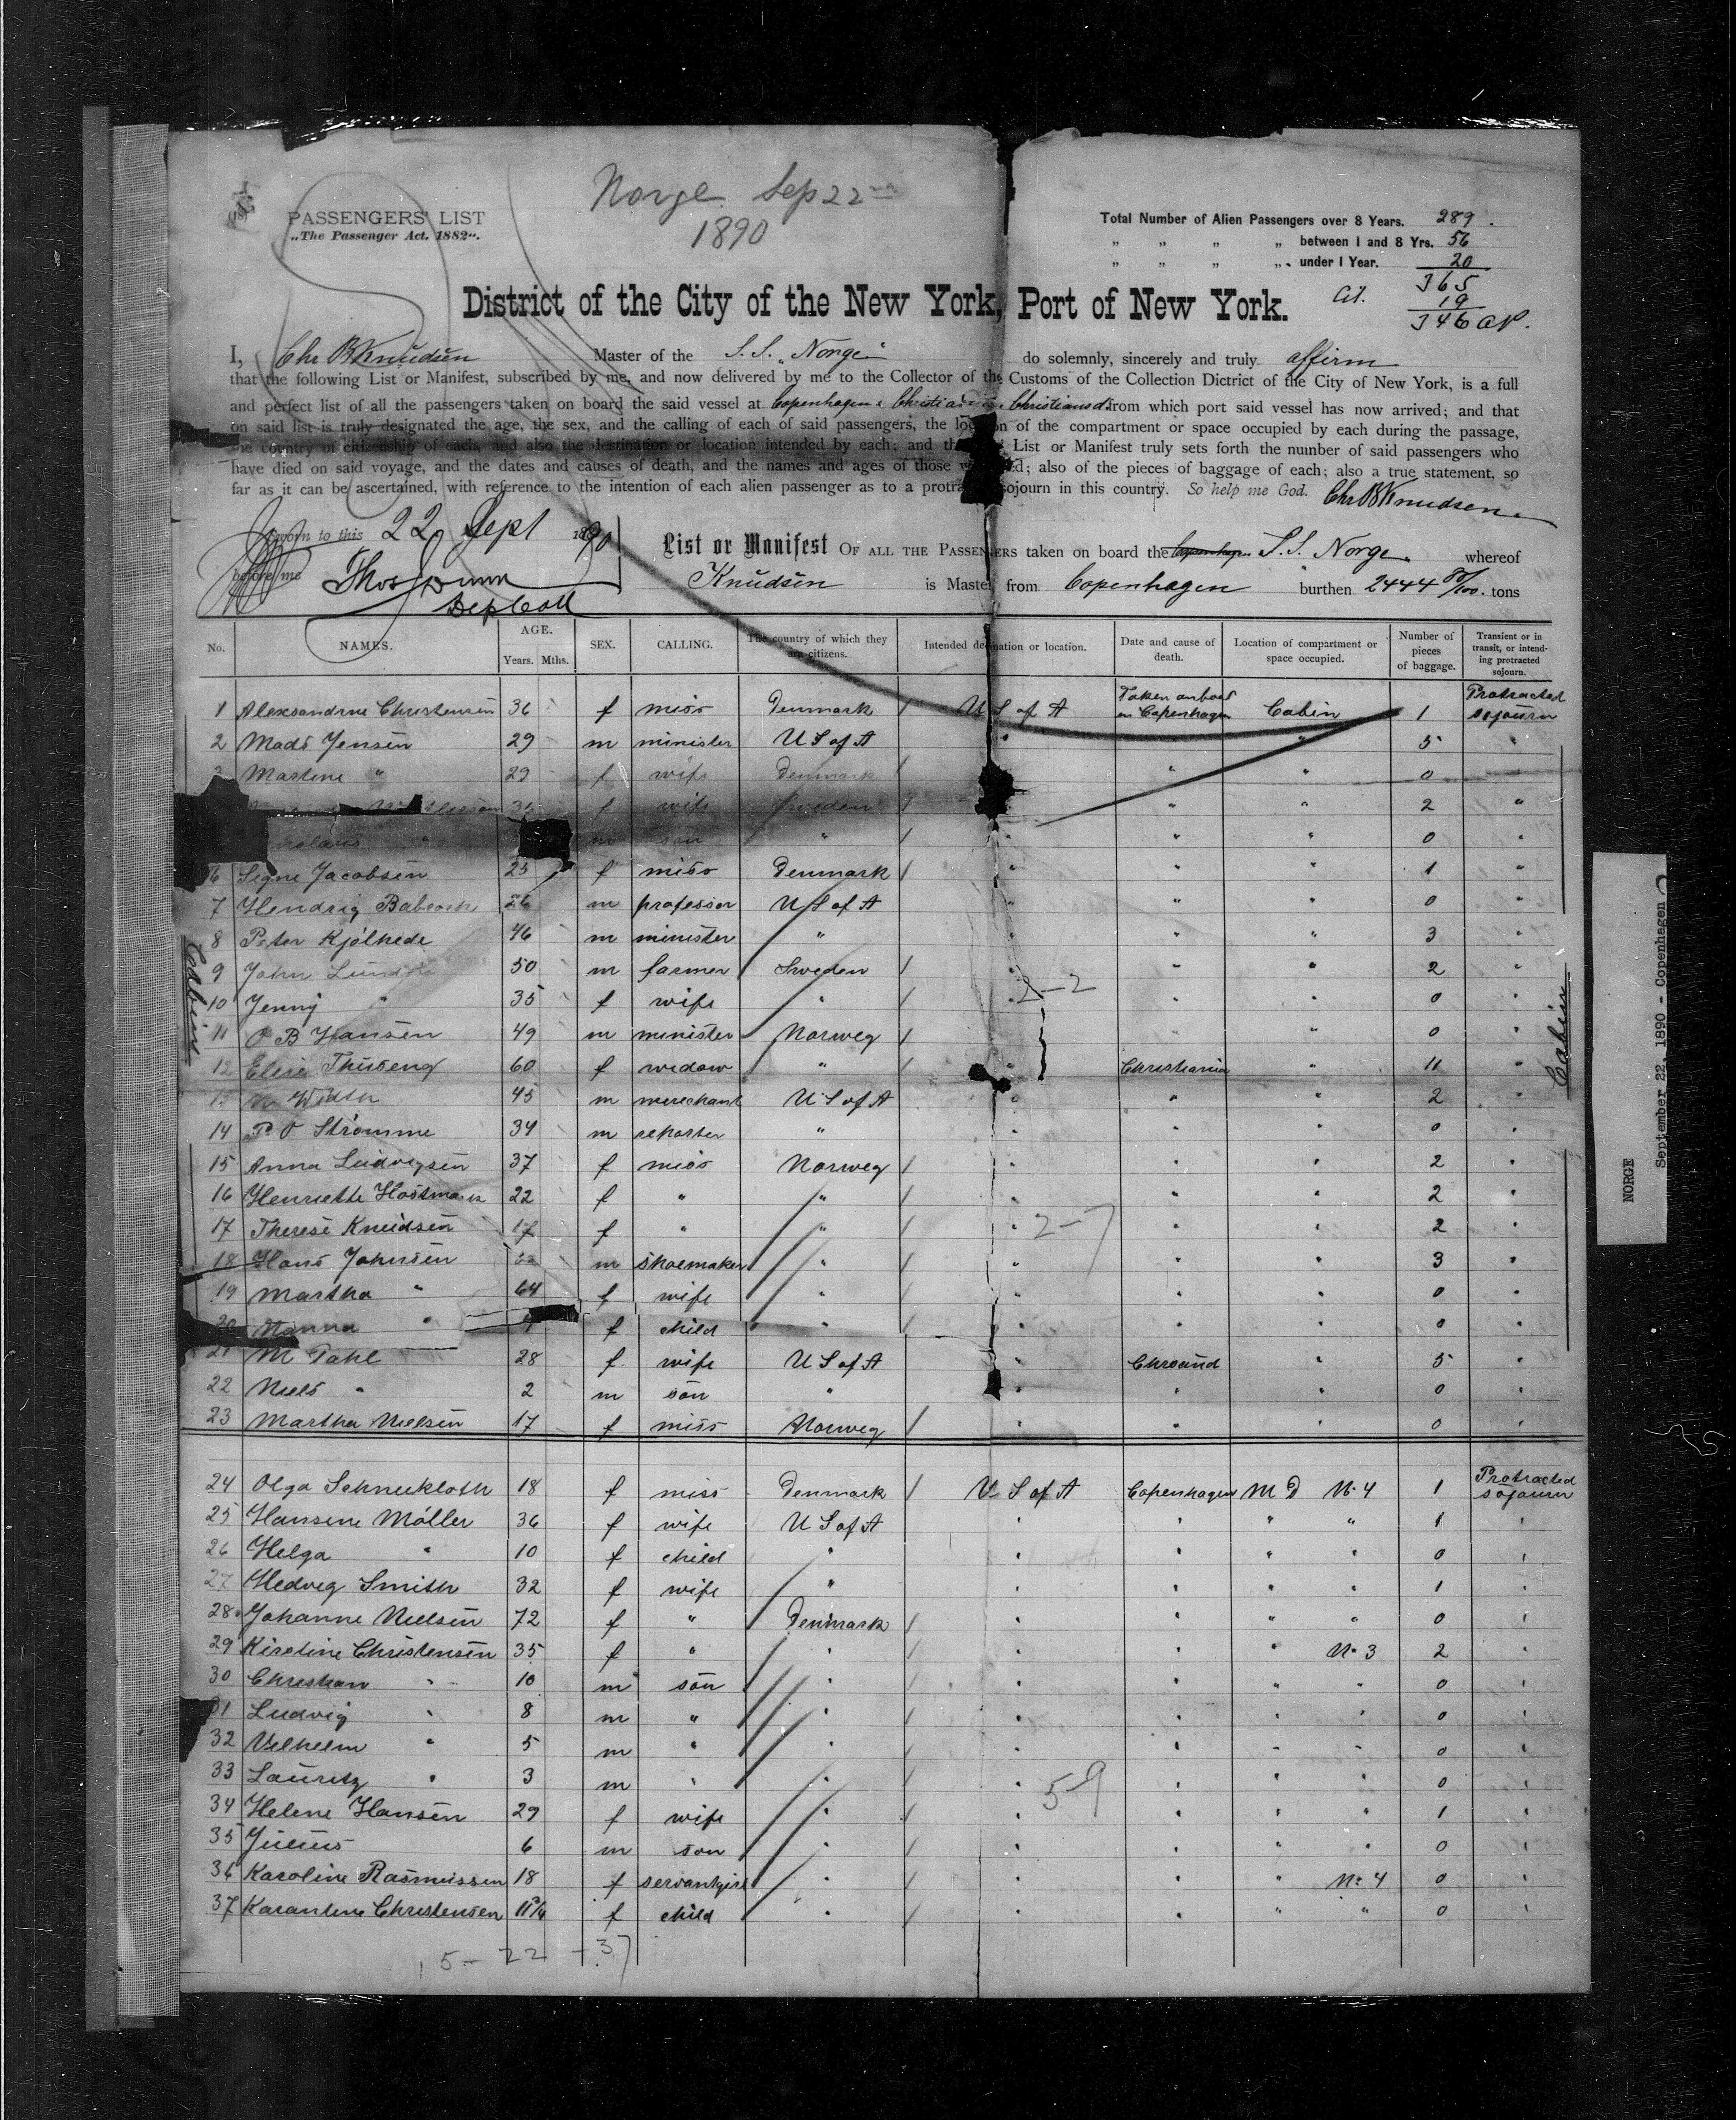 Norge Sep 22nd
1890
PASSENGERS' LIST
„The Passenger Act. 1882“.
Total Number of Alien Passengers over 8 Years. 289.
„ „ „ „ between 1 and 8 Yrs. 56
„ „ „ „ under 1 Year. 20
365
Cit. 19
346 AP.
District of the City of the New York, Port of New York.
I, Chr B Knudsen Master of the S.S. „Norge“ do solemnly, sincerely and truly affirm
that the following List or Manifest, subscribed by me, and now delivered by me to the Collector of the Customs of the Collection District of the City of New York, is a full
and perfect list of all the passengers taken on board the said vessel at Copenhagen, Christiania, Christiansd. from which port said vessel has now arrived; and that
on said list is truly designated the age, the sex, and the calling of each of said passengers, the location of the compartment or space occupied by each during the passage,
the country of citizenship of each, and also the destination or location intended by each; and th List or Manifest truly sets forth the number of said passengers who
have died on said voyage, and the dates and causes of death, and the names and ages of those d; also of the pieces of baggage of each; also a true statement, so
far as it can be ascertained, with reference to the intention of each alien passenger as to a protra sojourn in this country. So help me God. Chr B Knudsen.
Sworn to this 22 Sept 1890
before me Thos Dunn
Dep Coll
List or Manifest OF ALL THE PASSENGERS taken on board the Copenhagen S.S. Norge whereof
Knudsen is Master, from Copenhagen burthen 2444 /100. tons
No. NAMES. AGE. Years. Mths. SEX. CALLING. The country of which they are citizens. Intended destination or location. Date and cause of death. Location of compartment or space occupied. Number of pieces of baggage. Transient or in transit, or intending protracted sojourn.
1 Aleksandrine Christensen 36 f miss Denmark / U S of A Taken onboard in Copenhagen Cabin 1 Protracted sojourn
2 Mads Jensen 29 m minister U S of A " " " 5 "
3 Martine " 29 f wife Denmark / " " 0 "
f wife Sweden / " " 2 "
m son " / " " " 0 "
6 Signe Jacobsen 25 f miss Denmark / " " " 1 "
7 Hendrig Babcock 26 m professor U S of A " " " 0 "
8 Peter Kjölhede 46 m minister " " " " 3 "
9 John 50 m farmer Sweden / " " " 2 "
10 Jenny " 35 f wife " / " " " 0 "
11 O B Hansen 49 m minister Norweg / " " " 0 "
12 Elise 60 f widow " / " Christiania " 11 "
45 m merchant U S of A " " " 2 "
14 P O Strömme 34 m reporter " " " " 0 "
15 Anna Ludvigsen 37 f miss Norweg / " " " 2 "
16 Henriette Hostmark 22 f " " / " " " 2 "
17 Therese Knudsen 17 f " " / " " " 2 "
18 Hans Johnsen m shoemaker " / " " " 3 "
19 Martha " 64 f wife " / " " " 0 "
20 Nanna " f child " / " " " 0 "
21 M Dahl 28 f wife U S of A " Chrsand " 5 "
22 Niels " 2 m son " " " " 0 "
23 Martha Nielsen 17 f miss Norweg / " " " 0 "
24 Olga Schneekloth 18 f miss Denmark / U S of A Copenhagen M D No. 4 1 Protracted sojourn
25 Hansine Möller 36 f wife U S of A " " " " 1 "
26 Helga " 10 f child " " " " " 0 "
27 Hedvig Smith 32 f wife " " " " " 1 "
28 Johanne Nielsen 72 f " Denmark / " " " " 0 "
29 Kirstine Christensen 35 f " " / " " " No. 3 2 "
30 Christian " 10 m son " / " " " " 0 "
31 Ludvig " 8 m " " / " " " " 0 "
32 Vilhelm " 5 m " " / " " " " 0 "
33 Lauritz " 3 m " " / " " " " 0 "
34 Helene Hansen 29 f wife " / " " " " 1 "
35 Julius 6 m son " / " " " " 0 "
36 Karoline Rasmussen 18 f servantgirl " / " " " No. 4 0 "
37 Karantine Christensen f child " / " " " " 0 "
2-2
2-7
59
5-22-37
Cabin
Cabin
NORGE
September 22, 1890 - Copenhagen